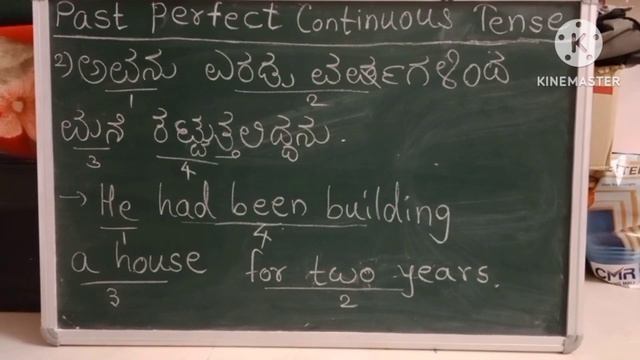 Past Perfect Continuous Tense
KINEMASTER
೨) ಅವನು ಎರಡು ವರ್ಷಗಳಿಂದ
1 2
ಮನೆ ಕಟ್ಟುತ್ತಲಿದ್ದನು.
3 4
→ He had been building
1 4
a house for two years.
3 2
CMR